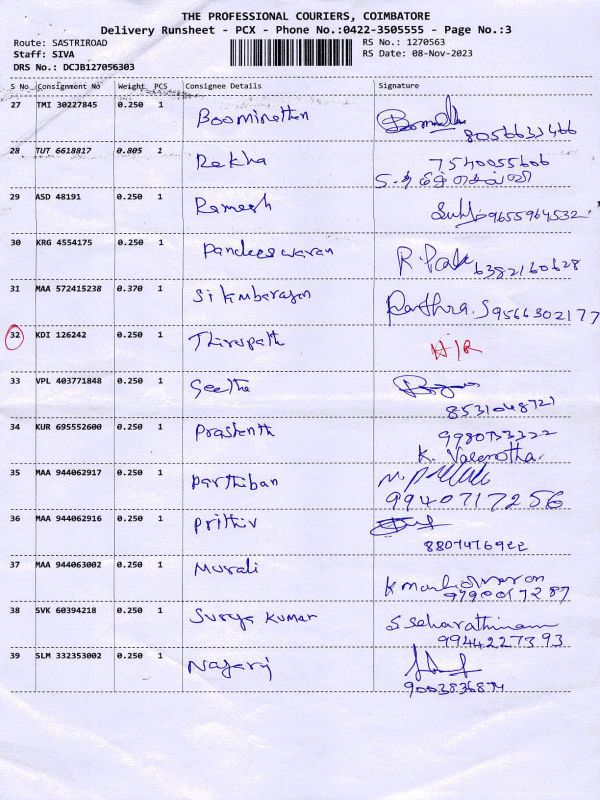 THE PROFESSIONAL COURIERS, COIMBATORE
Delivery Runsheet - PCX - Phone No.:0422-3505555 - Page No.:3
Route: SASTRIROAD RS No.: 1270563
Staff: SIVA RS Date: 08-Nov-2023
DRS No.: DCJB127056303
S No Consignment No Weight PCS Consignee Details Signature
27 TMI 30227845 0.250 1 Boominathan
8056633466
28 TUT 6618817 0.805 1 Rekha 7540055606
S. தமிழ் செல்வி
29 ASD 48191 0.250 1 Ramesh 9655964532
30 KRG 4554175 0.250 1 Pandeeswaran
6382160628
31 MAA 572415238 0.370 1 Parthra.S 9566302177
32 KDI 126242 0.250 1 Thirupath N/R
33 VPL 403771848 0.250 1 Geetha
8531048721
34 KUR 695552600 0.250 1 Prashanth
K.
35 MAA 944062917 0.250 1 Parthiban
9940717256
36 MAA 944062916 0.250 1 Prithiv
37 MAA 944063002 0.250 1 Murali
K Manoharan
9790017287
38 SVK 60394218 0.250 1 Surya Kumar
9944227393
39 SLM 332353002 0.250 1 Nagaraj